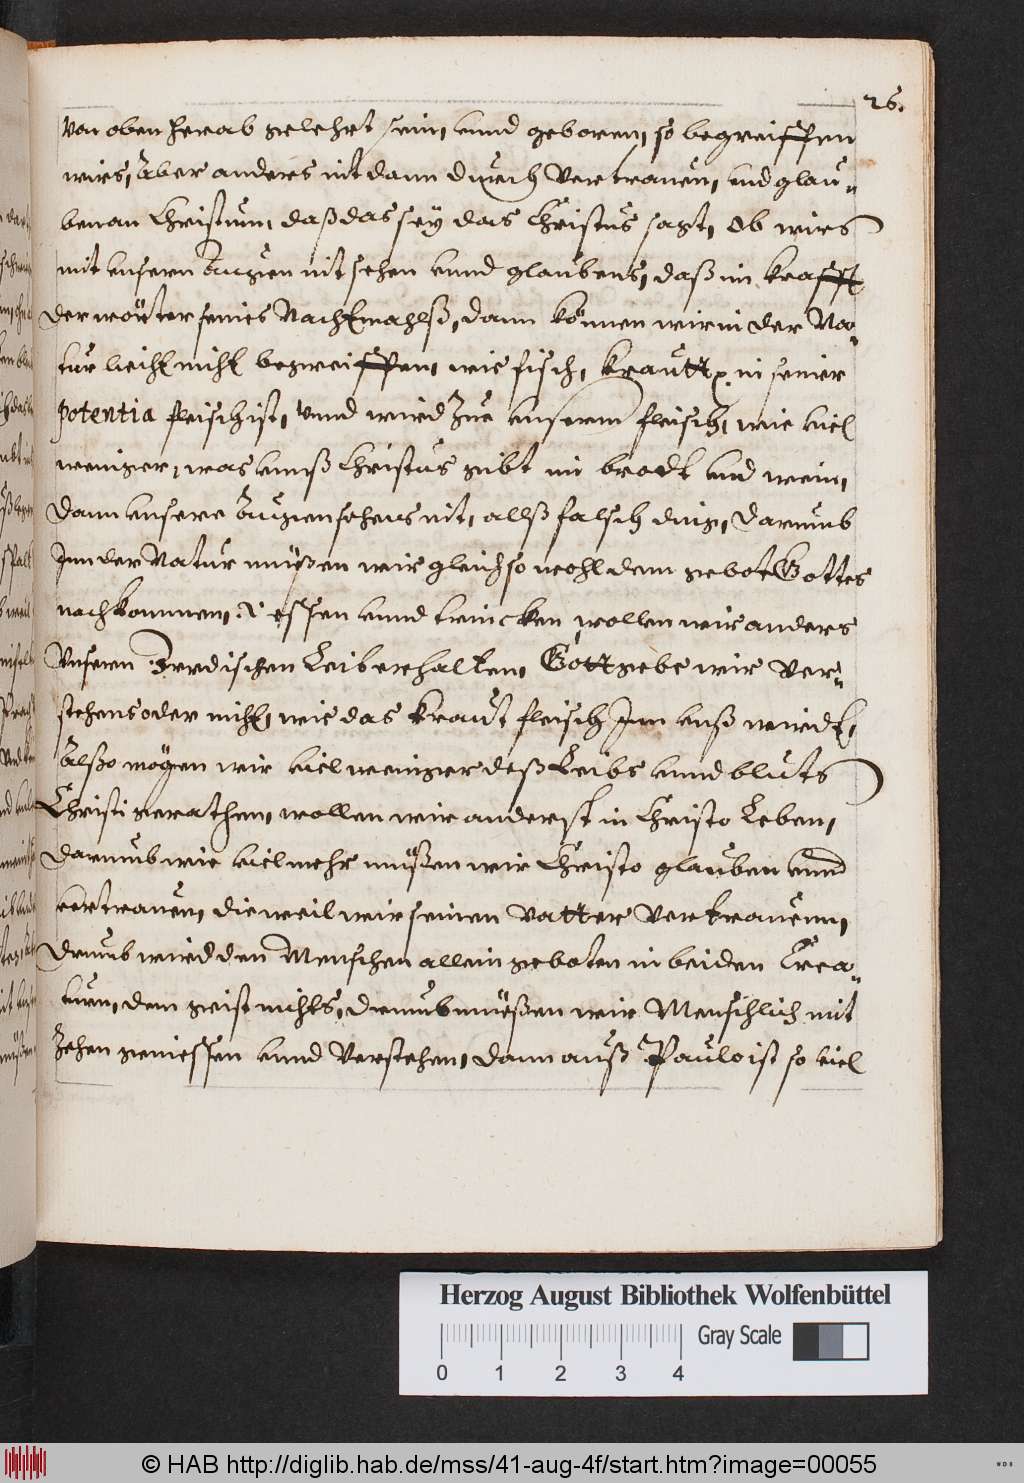 26.
von oben herab gelehrt sein, vnnd geboren, so begreiffen
wirs, Aber anders nit dann durch vertrauen, vnd glau-
ben an Christum, daß das sey das Christus sagt, Ob wirs
mit vnsern Augen nit sehen vnnd glaubens, daß in krafft
der wörter seines Nachtmahlß, dann können wir in der Na-
tur leicht nicht begreiffen, wie fisch, krautt in seiner
potentia fleisch ist, vnnd wird zue vnserm fleisch, wie viel
weniger, was vnnß Christus gibt im brodt vnd wein,
Dann vnsere Augen sehens nit, allß falsch ding, Darumb
Inn der Natur müßen wir gleich so wohl dem gebot Gottes
nachkommen, essen vnnd trincken, wollen wir anders
Vnsern Irrdischen Leib erhalten, Gott gebe wir ver-
stehens oder nicht, wie das kraut fleisch Inn vnß wirdt,
Alßo mögen wir viel weniger deß Leibs vnnd bluts
Christi gerathen, wollen wir anderst in Christo Leben,
Darumb wie viel mehr müßen wir Christo glauben vnnd
vertrauen, die weil wir seinen Vatter vertrauenn,
Drumb wird den Menschen allein geboten in beiden Crea-
turn, dem geist nichts, Drumb müeßen wir Menschlich mit
Zehen geniessen vnnd verstehen, Dann auß Paulo ist so viel
Herzog August Bibliothek Wolfenbüttel
Gray Scale
0 1 2 3 4
© HAB http://diglib.hab.de/mss/41-aug-4f/start.htm?image=00055